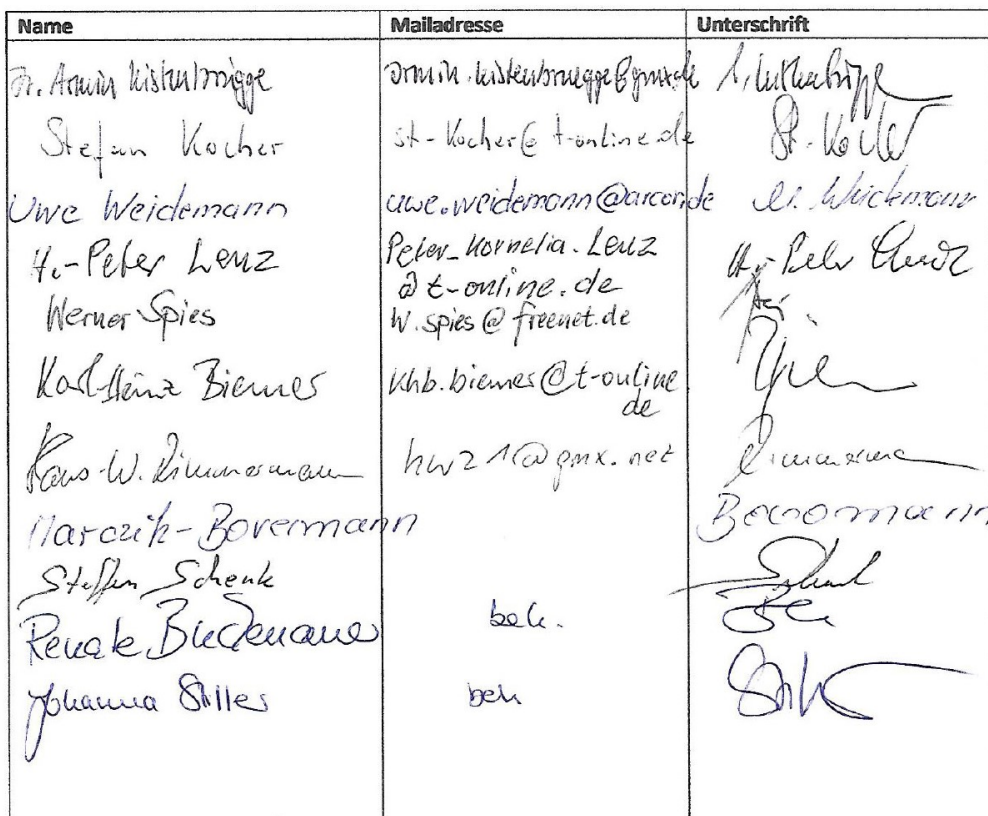 Name Mailadresse Unterschrift
Dr. Armin Kistenbrügge armin.kistenbruegge@gmx.de
Stefan Kocher st-Kocher@t-online.de St. Kocher
Uwe Weidemann uwe.weidemann@arcor.de U. Weidemann
H.-Peter Lenz Peter_Kornelia.Lenz H.-Peter Lenz
@t-online.de
Werner Spies W.spies@freenet.de
Karl-Heinz Biemer khb.biemer@t-online.
de
Hans-W. Zimmermann hwz1@gmx.net
Marczik-Bovermann Bovermann
Steffen Schenk Schenk
Renate bek.
Johanna Stiller bek